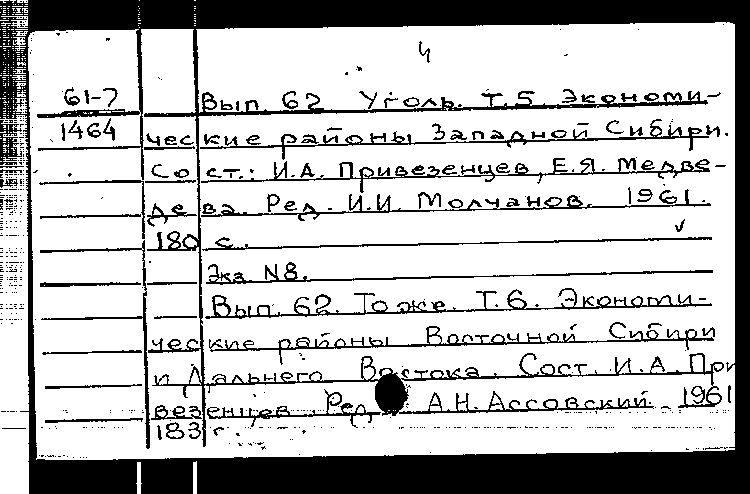 4
61-7 Вып. 62 Уголь. Т.5 Экономи-
1464 ческие районы Западной Сибири.
Сост.: И.А. Привезенцев, Е.Я. Медве-
дева. Ред. И.И. Молчанов. 1961.
180 с. ✓
Экз. N8.
Вып. 62. То же. Т.6. Экономи-
ческие районы Восточной Сибири
и Дальнего Востока. Сост. И.А. При
везенцев. Ред. А.Н. Ассовский. 1961
183 с.